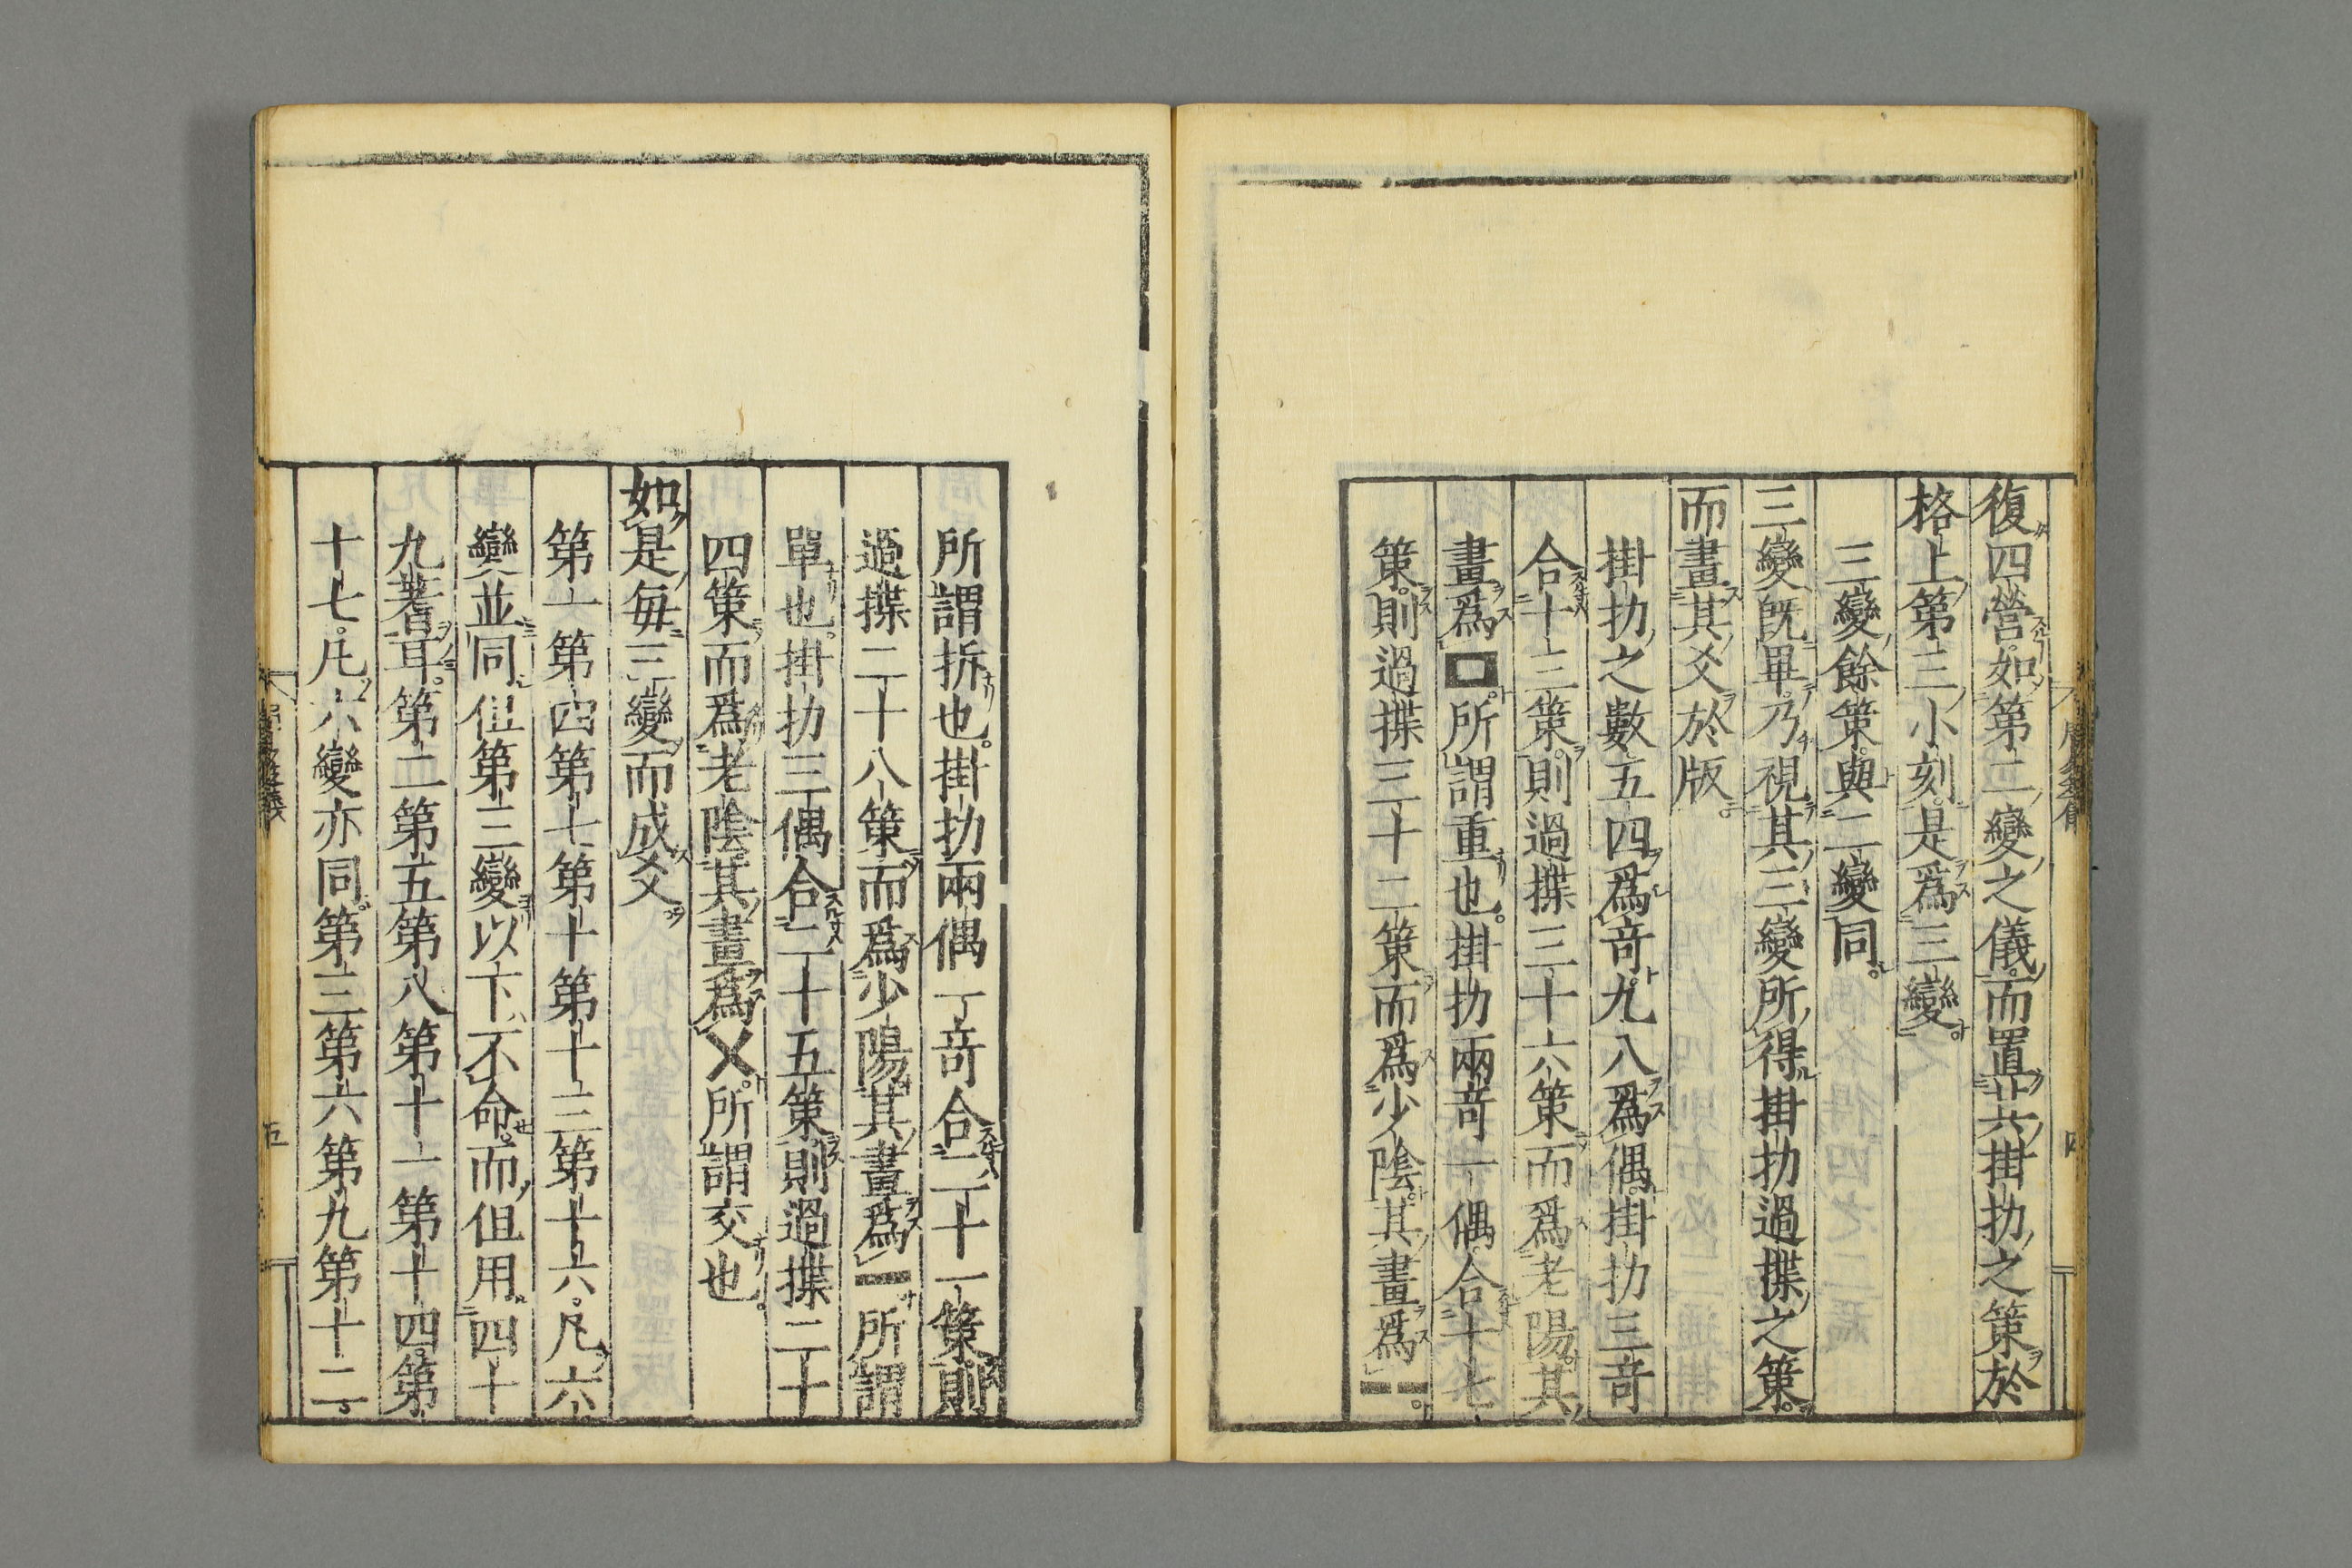 復四營如第二變之儀而置其掛扐之策於
格上第三小刻是爲三變
三變餘策與二變同
三變旣畢乃視其三變所得掛扐過揲之策
而畫其爻於版
掛扐之數五四爲竒九八爲偶掛扐三竒
合十三策則過揲三十六策而爲老陽其
畫爲□所謂重也掛扐兩竒一偶合十七
策則過揲三十二策而爲少陰其畫爲⚋
所謂拆也掛扐兩偶一竒合二十一策則
過揲二十八策而爲少陽其畫爲⚊所謂
單也掛扐三偶合二十五策則過揲二十
四策而爲老陰其畫爲乂所謂交也
如是每三變而成爻
第一第四第七第十第十三第十六凡六
變並同但第三變以下不命而但用四十
九蓍耳第二第五第八第十一第十四第
十七凡六變亦同第三第六第九第十二